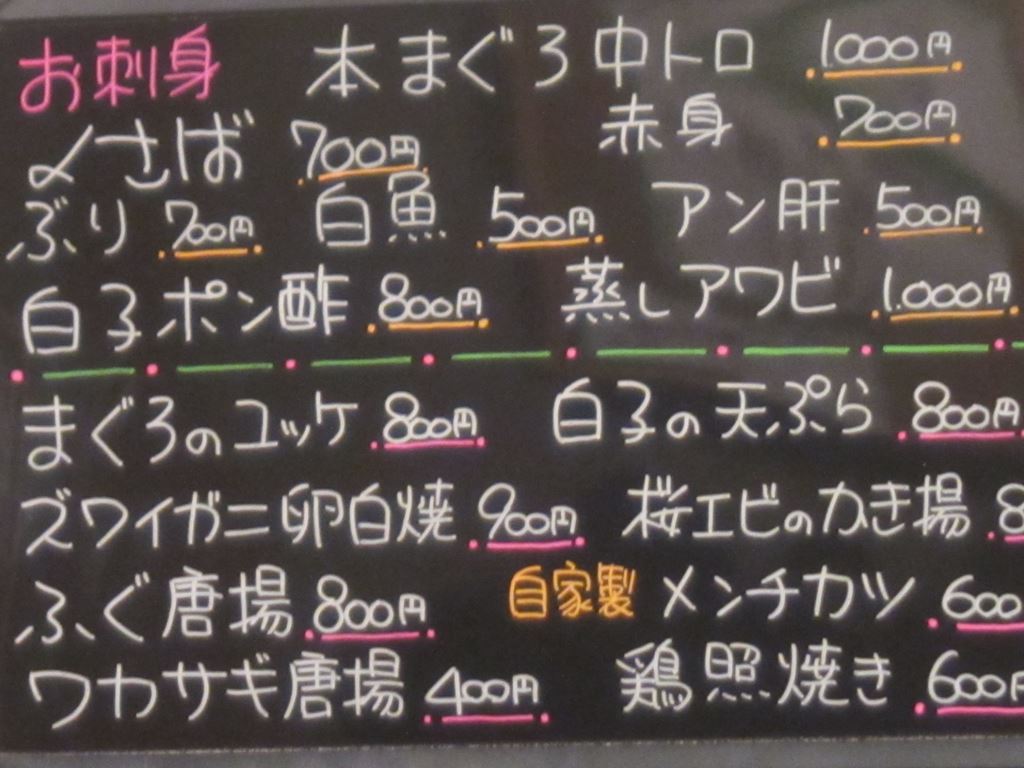 お刺身 本まぐろ中トロ 1.000円
赤身 700円
〆さば 700円
ぶり 700円 白魚 500円 アン肝 500円
白子ポン酢 800円 蒸しアワビ 1.000円
まぐろのユッケ 800円 白子の天ぷら 800円
ズワイガニ卵白焼 900円 桜エビのかき揚 8
ふぐ唐揚 800円 自家製 メンチカツ 600
ワカサギ唐揚 400円 鶏照焼き 600円